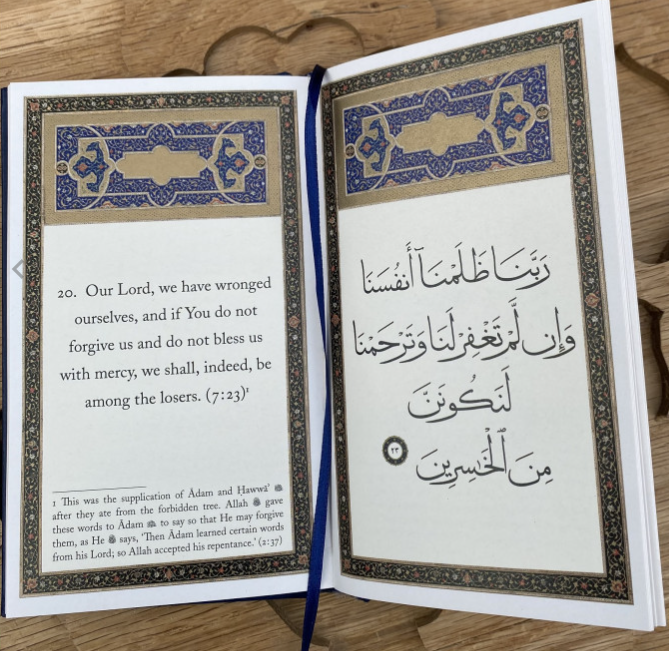 20. Our Lord, we have wronged
ourselves, and if You do not
forgive us and do not bless us
with mercy, we shall, indeed, be
among the losers. (7:23)¹
1 This was the supplication of Ādam and Ḥawwā’
after they ate from the forbidden tree. Allah gave
these words to Ādam to say so that He may forgive
them, as He says, ‘Then Ādam learned certain words
from his Lord; so Allah accepted his repentance.’ (2:37)
رَبَّنَا ظَلَمْنَآ أَنفُسَنَا
وَإِن لَّمْ تَغْفِرْ لَنَا وَتَرْحَمْنَا
لَنَكُونَنَّ
مِنَ ٱلْخَٰسِرِينَ ٢٣